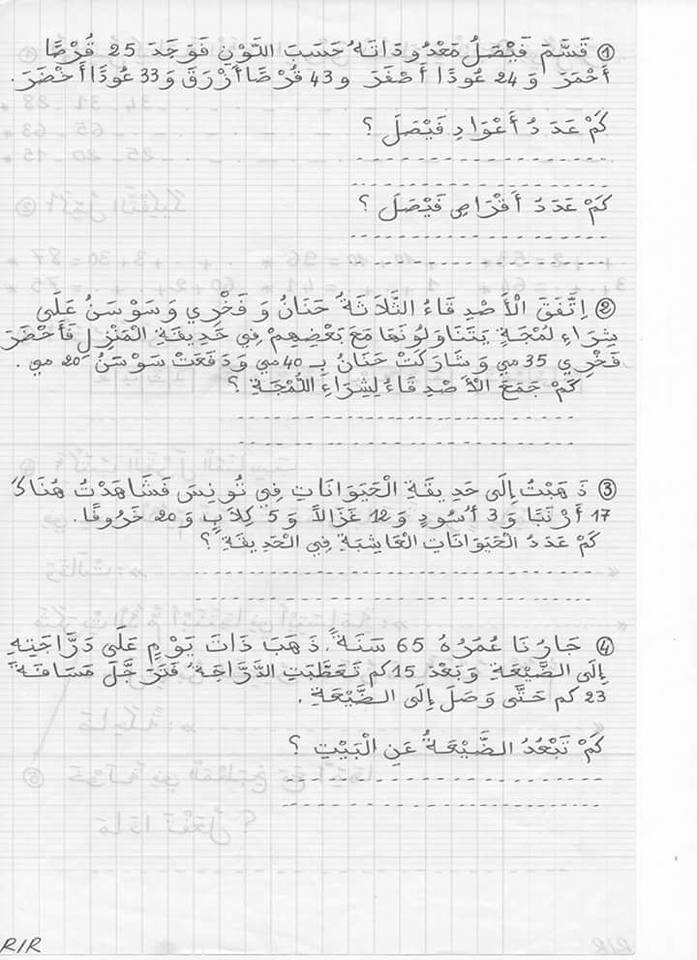 ① قَسَّمَ فَيْصَلُ مَعْدُودَاتَهُ حَسَبَ اللَّوْنِ فَوَجَدَ 25 قُرْصًا
أَحْمَرَ وَ 24 عُودًا أَصْفَرَ و 43 قُرْصًا أَزْرَقَ وَ 33 عُودًا أَخْضَرَ.
كَمْ عَدَدُ أَعْوَادِ فَيْصَلَ ؟
كَمْ عَدَدُ أَقْرَاصِ فَيْصَلَ ؟
② اِتَّفَقَ الْأَصْدِقَاءُ الثَّلَاثَةُ حَنَانُ وَ فَخْرِي وَ سَوْسَنُ عَلَى
شِرَاءِ لُمْجَةٍ يَتَنَاوَلُونَهَا مَعَ بَعْضِهِمْ فِي حَدِيقَةِ الْمَنْزِلِ فَأَحْضَرَ
فَخْرِي 35 مي وَ شَارَكَتْ حَنَانُ بِـ 40 مي وَ دَفَعَتْ سَوْسَنُ 20 مي .
كَمْ جَمَعَ الْأَصْدِقَاءُ لِشِرَاءِ اللُّمْجَةِ ؟
③ ذَهَبْتُ إِلَى حَدِيقَةِ الْحَيَوَانَاتِ فِي تُونِسَ فَشَاهَدْتُ هُنَاكَ
17 أَرْنَبًا وَ 3 أُسُودٍ وَ 12 غَزَالًا وَ 5 كِلَابٍ وَ 20 خَرُوفًا.
كَمْ عَدَدُ الْحَيَوَانَاتِ الْعَاشِبَةِ فِي الْحَدِيقَةِ ؟
④ جَارُنَا عُمَرُهُ 65 سَنَةً. ذَهَبَ ذَاتَ يَوْمٍ عَلَى دَرَّاجَتِهِ
إِلَى الضَّيْعَةِ وَ بَعْدَ 15 كم تَعَطَّبَتِ الدَّرَّاجَةُ فَتَرَجَّلَ مَسَافَةَ
23 كم حَتَّى وَصَلَ إِلَى الضَّيْعَةِ .
كَمْ تَبْعُدُ الضَّيْعَةُ عَنِ الْبَيْتِ ؟
R/R